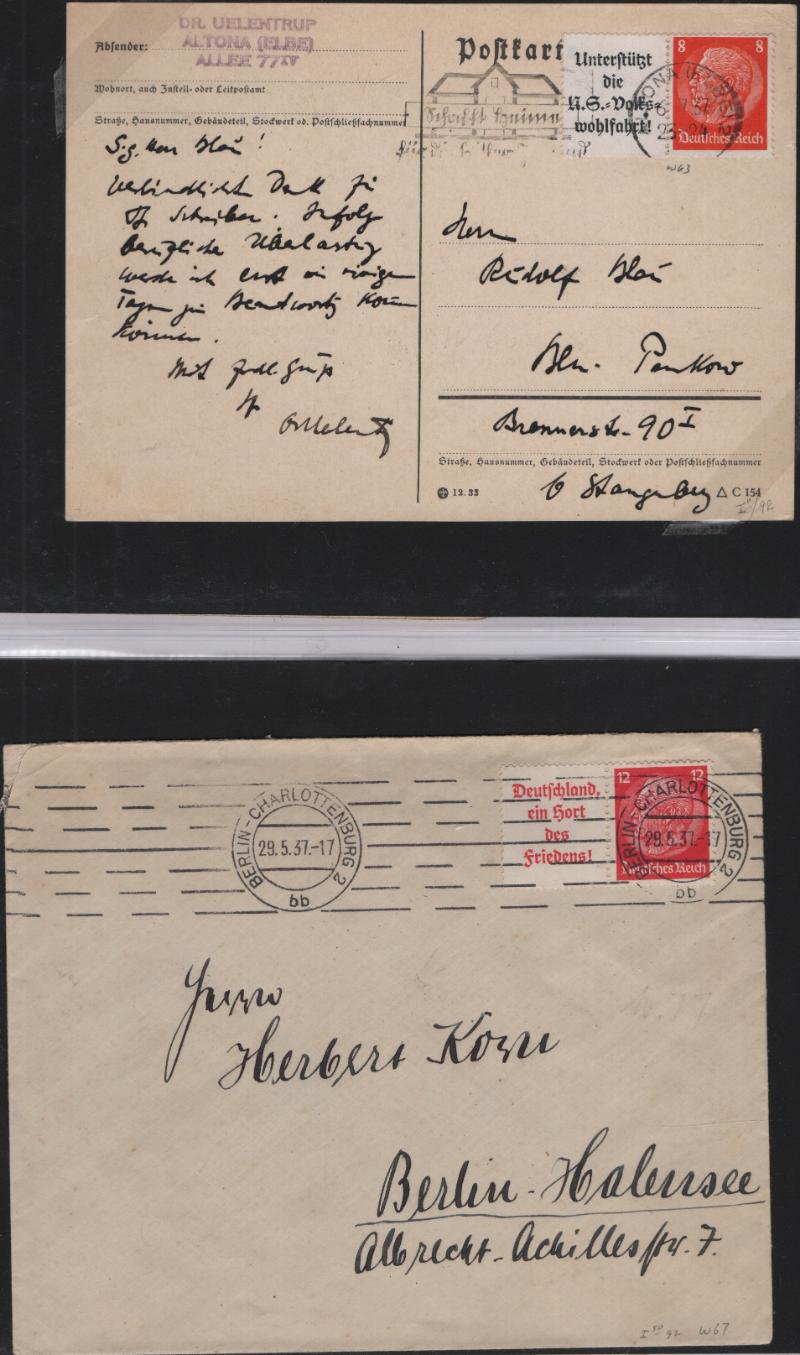 DR. UELENTRUP
ALTONA (ELBE)
ALLEE 77 IV
Absender:
Wohnort, auch Zustell- oder Leitpostamt
Straße, Hausnummer, Gebäudeteil, Stockwerk od. Postschließfachnummer
S.g. Herr Blau!
Verbindlichst Dank für
Ihr Schreiben. Infolge
beruflicher Überlastung
werde ich erst in einigen
Tagen zur Beantwortg kommen
können.
Mit frdl. Gruß
Ihr
Uelentrup
Postkart
Schafft Heime
Unterstützt
die
N.S.-Volks-
wohlfahrt!
8 8
Deutsches Reich
W63
Herrn
Rudolf Blau
Bln. Pankow
Brennerstr. 90 I
Straße, Hausnummer, Gebäudeteil, Stockwerk oder Postschließfachnummer
b Stangenberg
12.33
C 154
BERLIN-CHARLOTTENBURG 2
29.5.37.-17
bb
Deutschland,
ein Hort
des
Friedens!
12 12
Deutsches Reich
BERLIN-CHARLOTTENBURG 2
29.5.37.-17
bb
Herrn
Herbert Korn
Berlin-Halensee
Albrecht-Achillesstr. 7.
W67